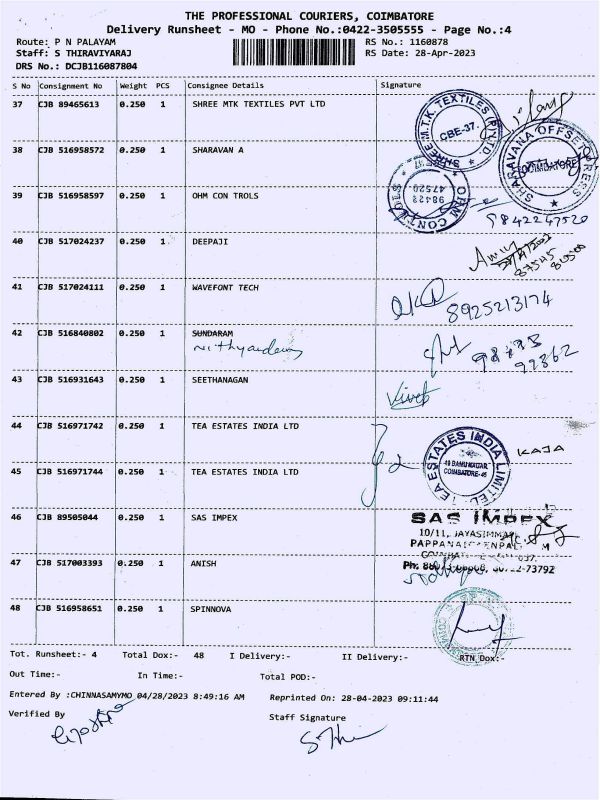 THE PROFESSIONAL COURIERS, COIMBATORE
Delivery Runsheet - MO - Phone No.:0422-3505555 - Page No.:4
Route: P N PALAYAM RS No.: 1160878
Staff: S THIRAVIYARAJ RS Date: 28-Apr-2023
DRS No.: DCJB116087804
S No Consignment No Weight PCS Consignee Details Signature
37 CJB 89465613 0.250 1 SHREE MTK TEXTILES PVT LTD
SHREE M.T.K. TEXTILES (P) LTD
CBE-37
38 CJB 516958572 0.250 1 SHARAVAN A
SHARAVANA OFFSET PRESS
COIMBATORE
39 CJB 516958597 0.250 1 OHM CON TROLS
OHM CONTROLS
98422
47520
9842247520
40 CJB 517024237 0.250 1 DEEPAJI
41 CJB 517024111 0.250 1 WAVEFONT TECH
8925213174
42 CJB 516840802 0.250 1 SUNDARAM
43 CJB 516931643 0.250 1 SEETHANAGAN
Vivek
44 CJB 516971742 0.250 1 TEA ESTATES INDIA LTD
TEA ESTATES INDIA LIMITED
COIMBATORE-45
KAJA
45 CJB 516971744 0.250 1 TEA ESTATES INDIA LTD
46 CJB 89505044 0.250 1 SAS IMPEX
SAS IMPEX
10/11, JAYASIMMA
47 CJB 517003393 0.250 1 ANISH
48 CJB 516958651 0.250 1 SPINNOVA
Tot. Runsheet:- 4 Total Dox:- 48 I Delivery:- II Delivery:- RTN Dox:-
Out Time:- In Time:- Total POD:-
Entered By :CHINNASAMYMO 04/28/2023 8:49:16 AM Reprinted On: 28-04-2023 09:11:44
Verified By Staff Signature